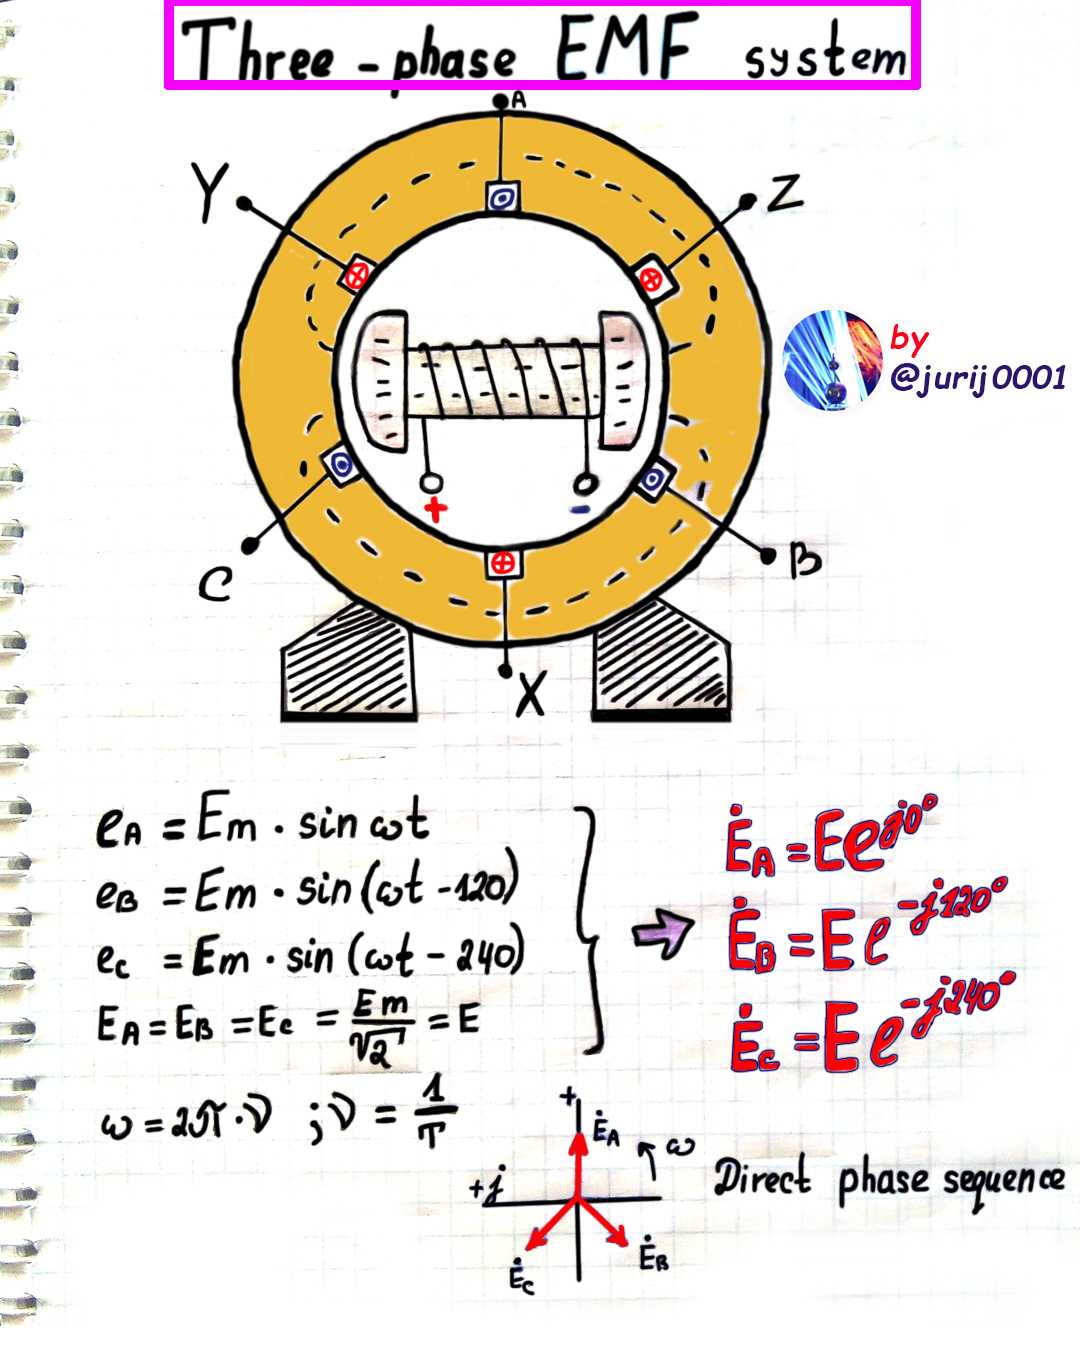 Three-phase EMF system
A
Y
Z
by
@jurij0001
+
-
C
B
X
eA = Em · sin ωt
eB = Em · sin (ωt - 120)
eC = Em · sin (ωt - 240)
EA = EB = EC = Em/√2 = E
ω = 2π · ν ; ν = 1/T
ĖA = Ee^j0°
ĖB = Ee^-j120°
ĖC = Ee^-j240°
+
ĖA
ω
+j
Direct phase sequence
ĖC
ĖB